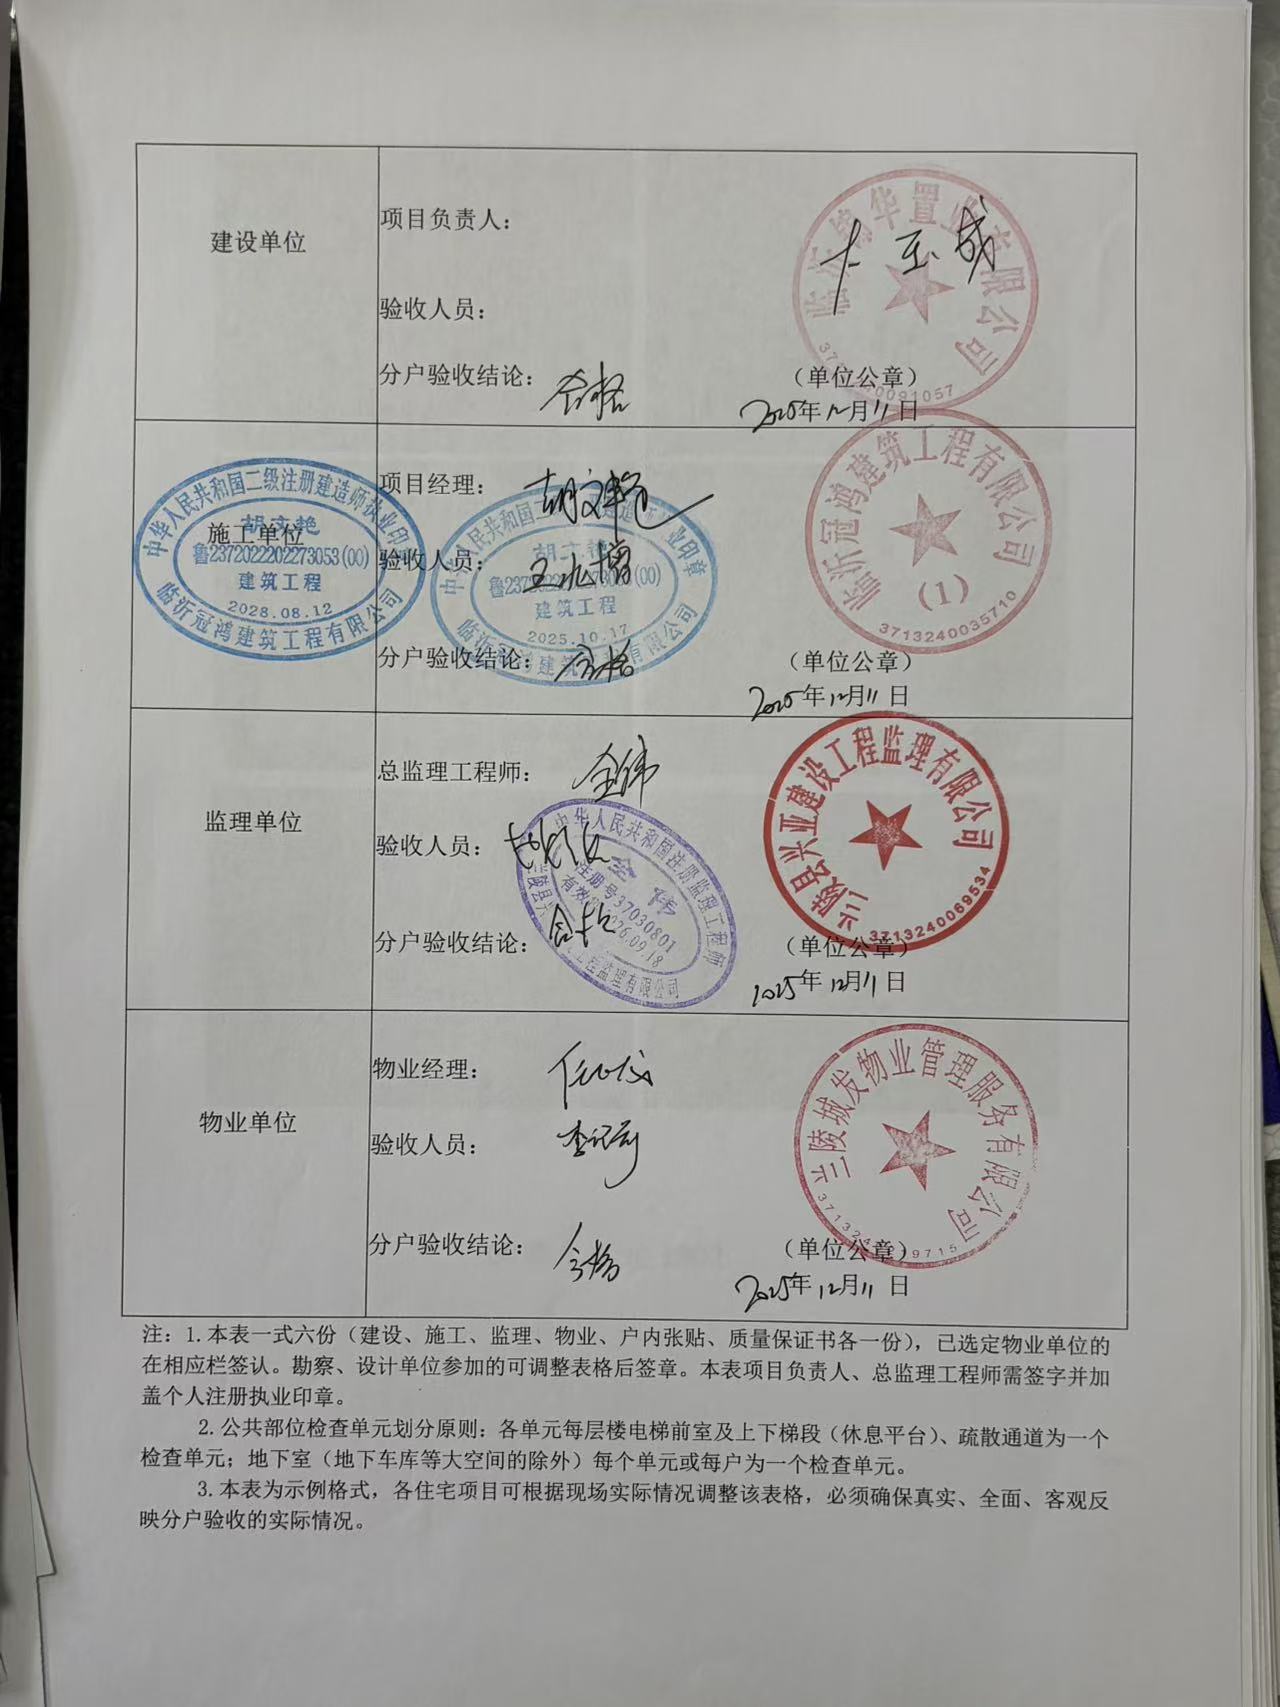 建设单位
项目负责人：
验收人员：
分户验收结论：合格
（单位公章）
2025年12月11日
临沂锦华置业有限公司
施工单位
项目经理：胡文艳
验收人员：
分户验收结论：合格
（单位公章）
2025年12月11日
中华人民共和国二级注册建造师执业印章
胡文艳
鲁2372022202273053(00)
建筑工程
2028.08.12
临沂冠鸿建筑工程有限公司
中华人民共和国二级注册建造师执业印章
胡文艳
鲁2372022202273053(00)
建筑工程
2025.10.17
临沂冠鸿建筑工程有限公司
临沂冠鸿建筑工程有限公司
(1)
3713240035710
监理单位
总监理工程师：全伟
验收人员：
分户验收结论：合格
（单位公章）
2025年12月11日
中华人民共和国注册监理工程师
全伟
注册号37030801
有效期2026.09.18
工程监理有限公司
兰陵县兴亚建设工程监理有限公司
3713240069534
物业单位
物业经理：
验收人员：
分户验收结论：合格
（单位公章）
2025年12月11日
兰陵城发物业管理服务有限公司
注：1.本表一式六份（建设、施工、监理、物业、户内张贴、质量保证书各一份），已选定物业单位的
在相应栏签认。勘察、设计单位参加的可调整表格后签章。本表项目负责人、总监理工程师需签字并加
盖个人注册执业印章。
2.公共部位检查单元划分原则：各单元每层楼电梯前室及上下梯段（休息平台）、疏散通道为一个
检查单元；地下室（地下车库等大空间的除外）每个单元或每户为一个检查单元。
3.本表为示例格式，各住宅项目可根据现场实际情况调整该表格，必须确保真实、全面、客观反
映分户验收的实际情况。